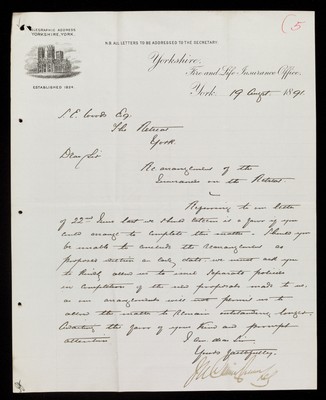 5
TELEGRAPHIC ADDRESS
YORKSHIRE, YORK.
N.B. ALL LETTERS TO BE ADDRESSED TO THE SECRETARY.
Yorkshire
Fire and Life Insurance Office,
ESTABLISHED 1824
York. 19 Augt. 1891
S. E. Woods Esq.
The Retreat
York
Dear Sir
Re arrangement of the
Insurances on the Retreat
Referring to our letter
of 22nd June last we should esteem it a favor if you
could arrange to complete this matter. Should you
be unable to conclude the rearrangement as
proposed within an early date we must ask you
to kindly allow us to send separate policies
in completion of the new proposals made to us,
as our arrangements will not permit us to
allow the matter to remain outstanding longer.
Awaiting the favor of your kind and prompt
attention
I am dear Sir
Yours faithfully,